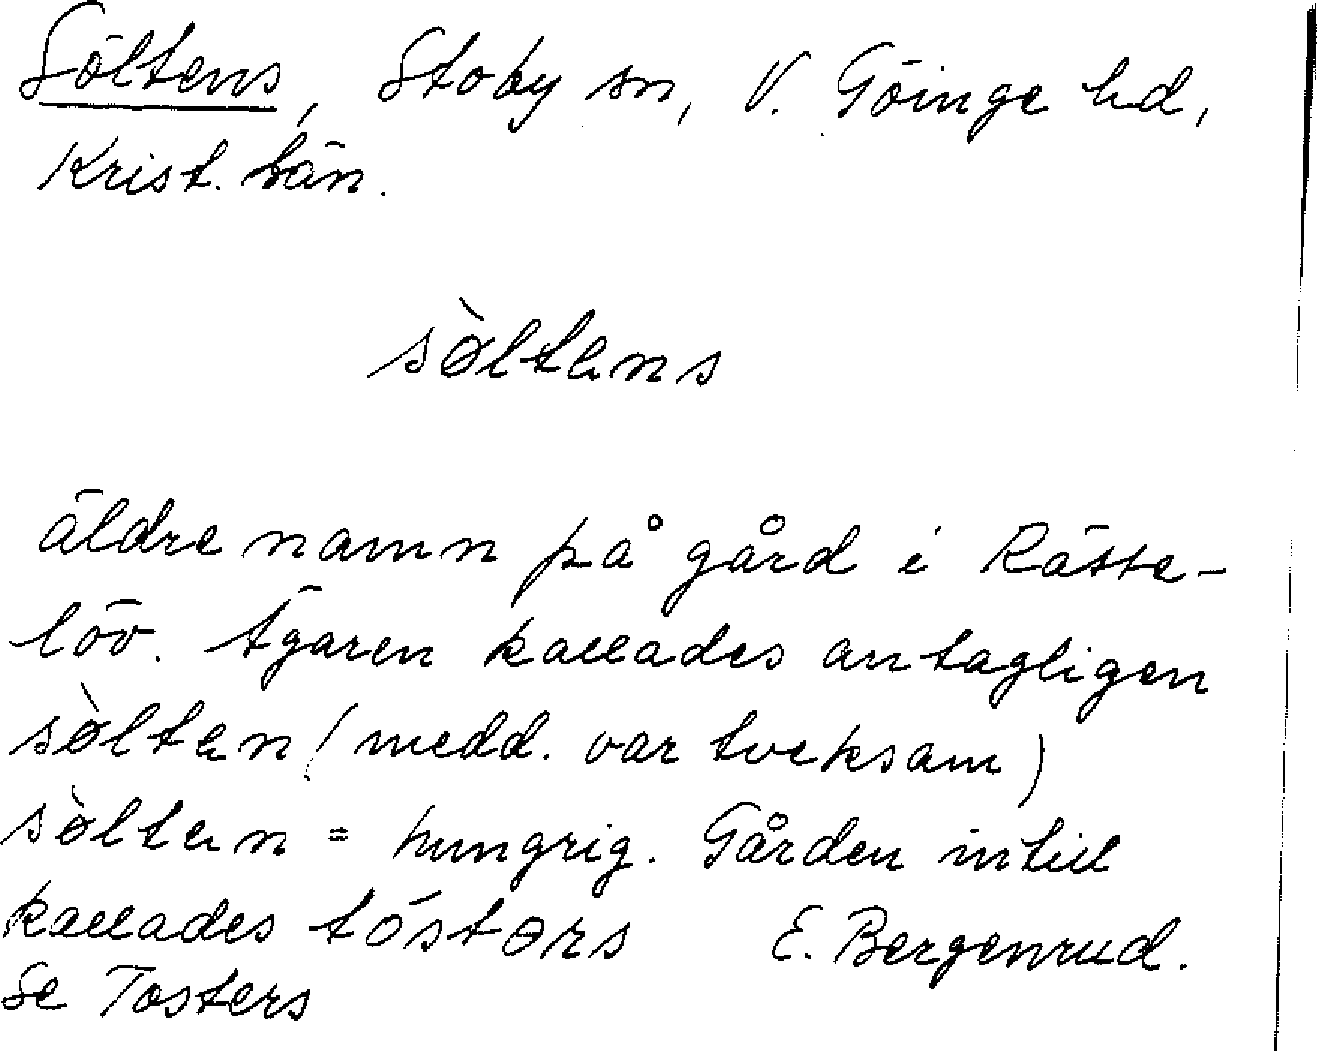 Söltens, Stoby sn, V. Göinge hd,
Krist. län.
sòltens
äldre namn på gård i Rätte-
löv. Ägaren kallades antagligen
sòlten (medd. var tveksam)
sòlten = hungrig. Gården intill
kallades tósters E. Bergenrud.
Se Tosters